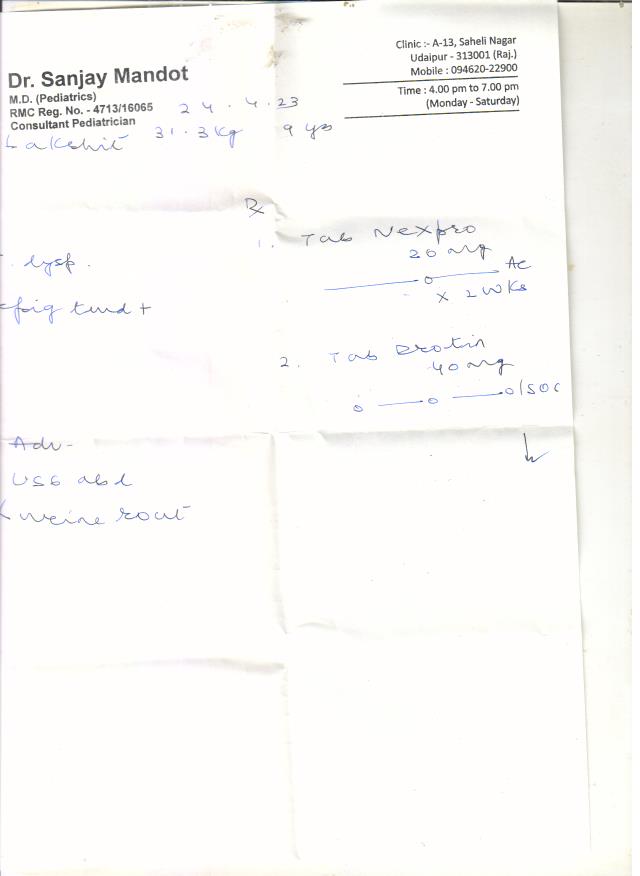 Dr. Sanjay Mandot
M.D. (Pediatrics)
RMC Reg. No. - 4713/16065
Consultant Pediatrician
Clinic :- A-13, Saheli Nagar
Udaipur - 313001 (Raj.)
Mobile : 094620-22900
Time : 4.00 pm to 7.00 pm
(Monday - Saturday)
24.4.23
Lakshit 31.3Kg 9 yrs
Rx
1. Tab Nexpro
20 mg
AC
x 2 WKs
dysp.
epig tend +
2. Tab Drotin
40 mg
o — o — o/SOS
Adv-
USG abd
urine rout